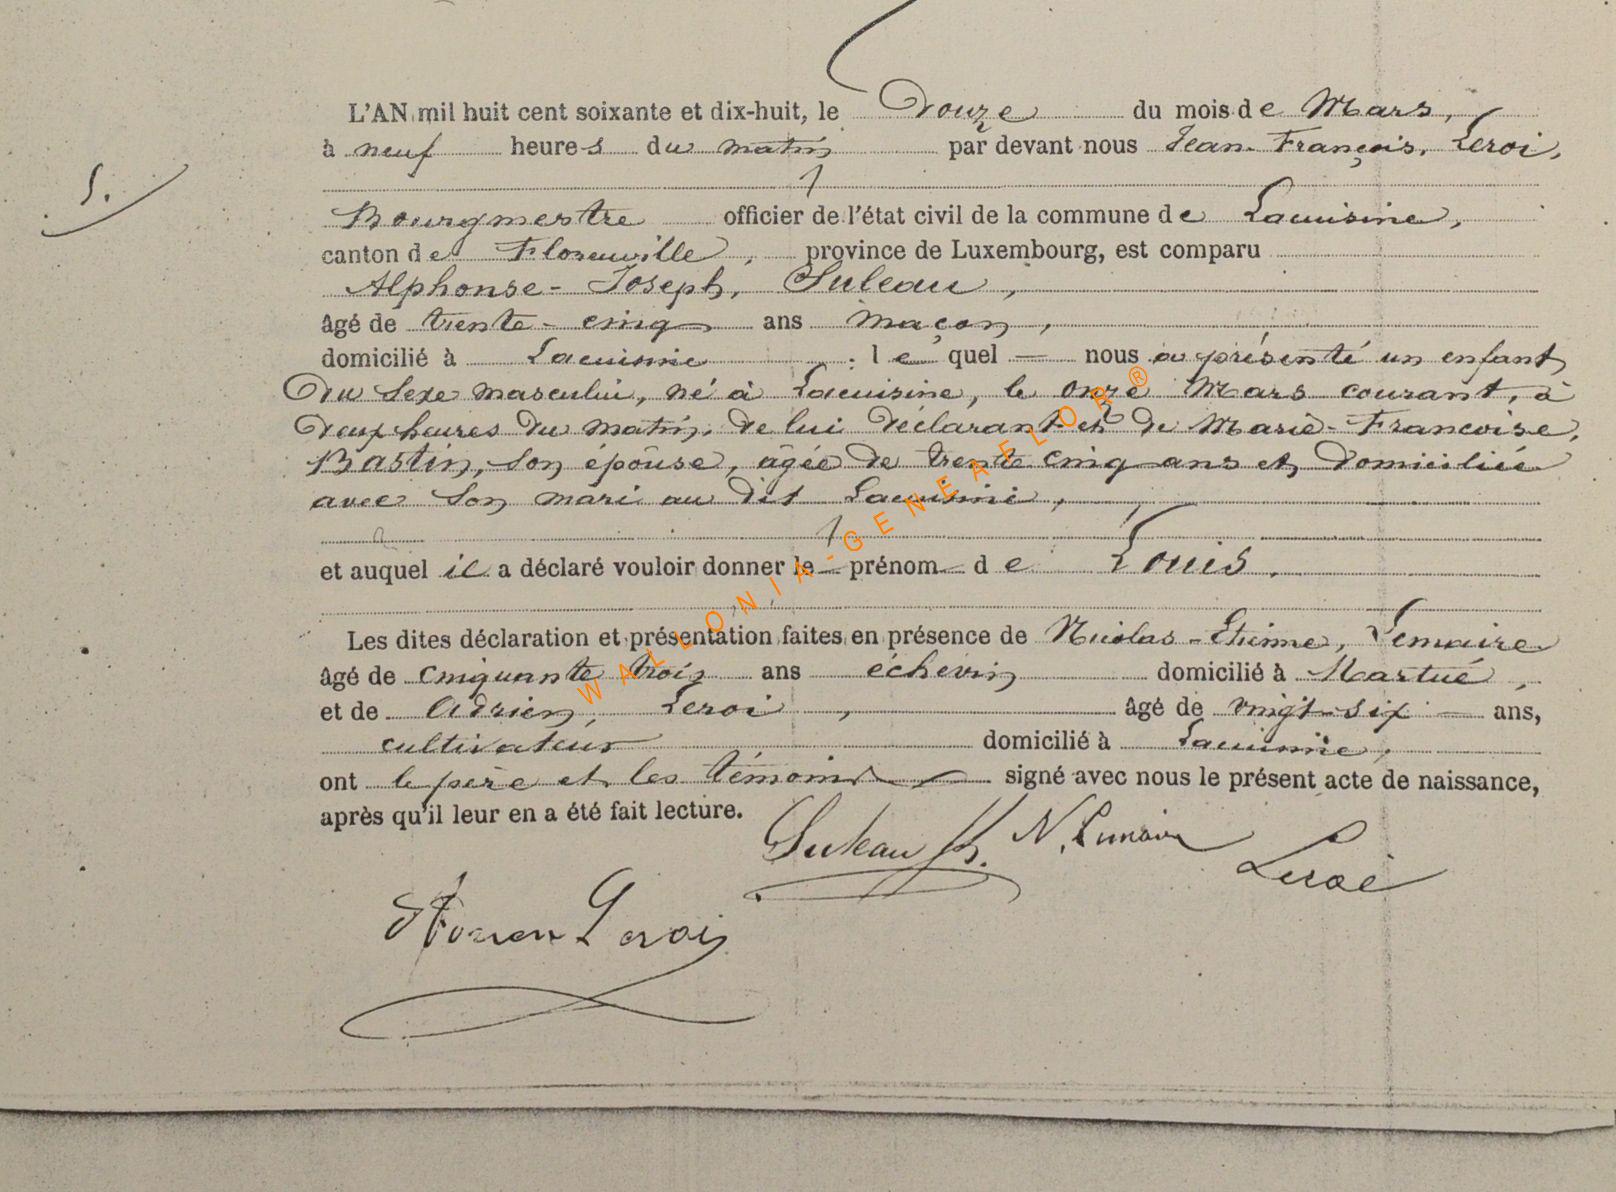 L'AN mil huit cent soixante et dix-huit, le Douze du mois de Mars,
à neuf heures du matin par devant nous Jean-François, Leroi,
5.
Bourgmestre officier de l'état civil de la commune de Lacuisine,
canton de Florenville, province de Luxembourg, est comparu
Alphonse-Joseph, Suleau,
âgé de trente-cinq ans maçon,
domicilié à Lacuisine : le quel nous a présenté un enfant
Du Sexe masculin, né à Lacuisine, le onze Mars courant, à
Deux heures du matin, de lui déclarant et de Marie-Francoise,
Bastin, son epouse, agée de trente cinq ans et domiciliée
avec son mari au dit Lacuisine,
et auquel il a déclaré vouloir donner le prénom de Louis.
Les dites déclaration et présentation faites en présence de Nicolas-Etienne, Lemaire
âgé de cinquante trois ans échevin domicilié à Martué,
et de Adrien, Leroi, âgé de vingt-six ans,
cultivateur domicilié à Lacuisine,
ont le père et les témoins signé avec nous le présent acte de naissance,
après qu'il leur en a été fait lecture.
Suleau N. Lemaire
Leroi
Adrien Leroi
WALLONIA-GENEAFLOR®